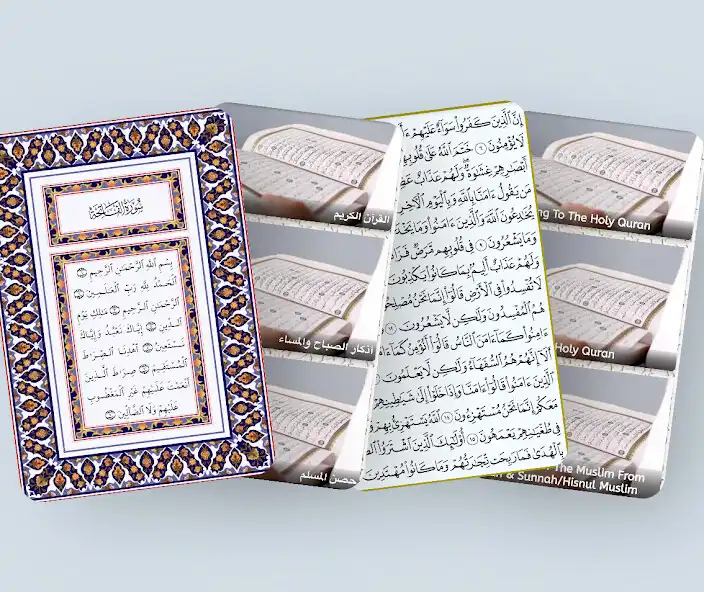 سُورَةُ الفَاتِحَةِ
بِسْمِ ٱللَّهِ ٱلرَّحْمَٰنِ ٱلرَّحِيمِ ١
ٱلْحَمْدُ لِلَّهِ رَبِّ ٱلْعَٰلَمِينَ ٢
ٱلرَّحْمَٰنِ ٱلرَّحِيمِ ٣ مَٰلِكِ يَوْمِ
ٱلدِّينِ ٤ إِيَّاكَ نَعْبُدُ وَإِيَّاكَ
نَسْتَعِينُ ٥ ٱهْدِنَا ٱلصِّرَٰطَ
ٱلْمُسْتَقِيمَ ٦ صِرَٰطَ ٱلَّذِينَ
أَنْعَمْتَ عَلَيْهِمْ غَيْرِ ٱلْمَغْضُوبِ
عَلَيْهِمْ وَلَا ٱلضَّآلِّينَ ٧
القرآن الكريم
أذكار الصباح والمساء
حصن المسلم
إِنَّ ٱلَّذِينَ كَفَرُوا۟ سَوَآءٌ عَلَيْهِمْ
لَا يُؤْمِنُونَ ٦ خَتَمَ ٱللَّهُ عَلَىٰ
أَبْصَٰرِهِمْ غِشَٰوَةٌ وَلَهُمْ عَذَابٌ
مَن يَقُولُ ءَامَنَّا بِٱللَّهِ وَبِٱلْيَوْمِ
يُخَٰدِعُونَ ٱللَّهَ وَٱلَّذِينَ ءَامَنُوا۟ وَمَا
وَمَا يَشْعُرُونَ ٩ فِى قُلُوبِهِم مَّرَضٌ
وَلَهُمْ عَذَابٌ أَلِيمٌۢ بِمَا كَانُوا۟ يَكْذِبُونَ
لَا تُفْسِدُوا۟ فِى ٱلْأَرْضِ قَالُوٓا۟ إِنَّمَا نَحْنُ
هُمُ ٱلْمُفْسِدُونَ وَلَٰكِن لَّا يَشْعُرُونَ
ءَامِنُوا۟ كَمَآ ءَامَنَ ٱلنَّاسُ قَالُوٓا۟ أَنُؤْمِنُ كَمَآ
أَلَآ إِنَّهُمْ هُمُ ٱلسُّفَهَآءُ وَلَٰكِن لَّا يَعْلَمُونَ
ٱلَّذِينَ ءَامَنُوا۟ قَالُوٓا۟ ءَامَنَّا وَإِذَا خَلَوْا۟ إِلَىٰ شَيَٰطِينِهِمْ
مَعَكُمْ إِنَّمَا نَحْنُ مُسْتَهْزِءُونَ ١٤ ٱللَّهُ يَسْتَهْزِئُ بِهِمْ
فِى طُغْيَٰنِهِمْ يَعْمَهُونَ ١٥ أُو۟لَٰٓئِكَ ٱلَّذِينَ ٱشْتَرَوُا۟
بِٱلْهُدَىٰ فَمَا رَبِحَت تِّجَٰرَتُهُمْ وَمَا كَانُوا۟ مُهْتَدِينَ
To The Holy Quran
Holy Quran
The Muslim From
& Sunnah/Hisnul Muslim